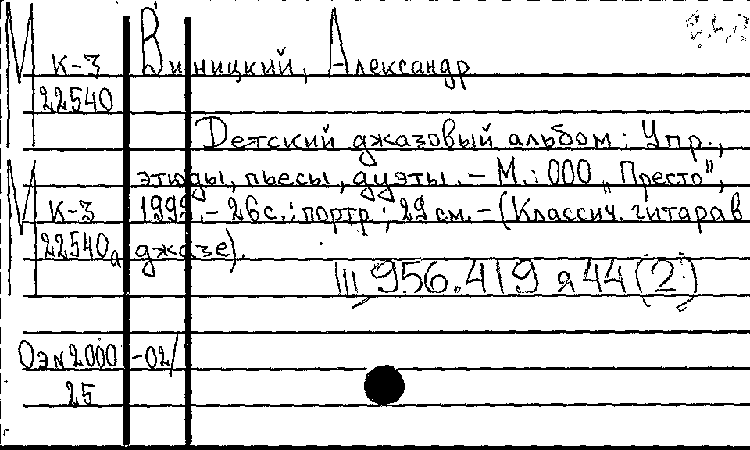 М К-3 Виницкий, Александр
22540
Детский джазовый альбом: Упр.,
этюды, пьесы, дуэты. – М.: ООО „Престо",
М К-3 1999. – 26 с.: портр.; 29 см. – (Классич. гитара в
22540а джазе).
Ш 956.419 я 44 (2)
ОэN2000-02/
25